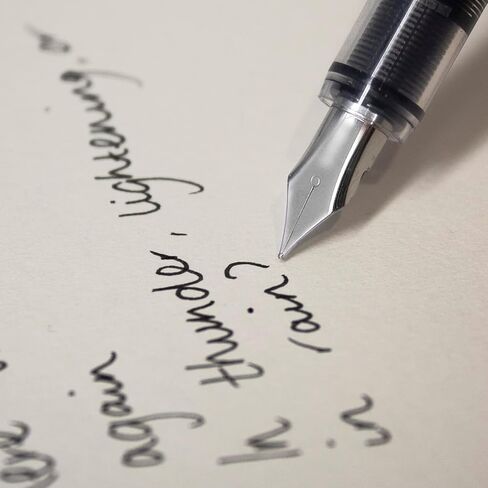 again
In thunder, lightening,
in rain?